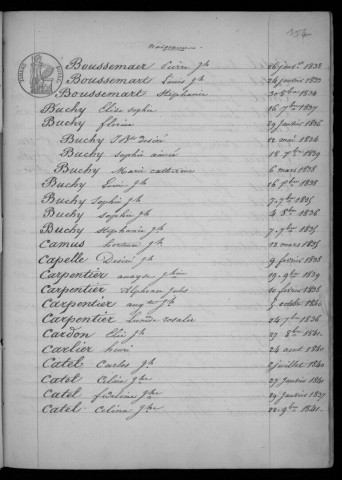 Naissances
Boussemaer Pierre Jh 26 janv. 1838
Boussemart Louis Jh 24 janvier 1833
Boussemart Stéphanie 30 8bre 1834
Buchy Elise Sophie 16 7bre 1837
Buchy florine 29 janvier 1836
Buchy J Bte désiré 12 mai 1834
Buchy Sophie aimée 18 7bre 1839
Buchy Marie catherine 6 mars 1838
Buchy Jh 16 1838
Buchy Sophie Jh 7 7bre 1835
Buchy Sophie Jh 4 8bre 1836
Buchy Stéphanie Jh 7 7bre 1835
Camus Jh 12 mars 1835
Capelle Désiré Jh 9 février 1838
Carpentier 19 9bre 1839
Carpentier Alphonse Jules 10 février 1838
Carpentier aug Jh 5 octobre 1840
Carpentier rosalie 24 1836
Cardon Elie Jh 27 8bre 1840
Carlier henri 24 aout 1840
Catel Carlos Jh 2 juillet 1840
Catel Célina Jhe 27 janvier 1840
Catel fideline Jhe 29 janvier 1837
Catel Célina Jhe 22 9bre 1841